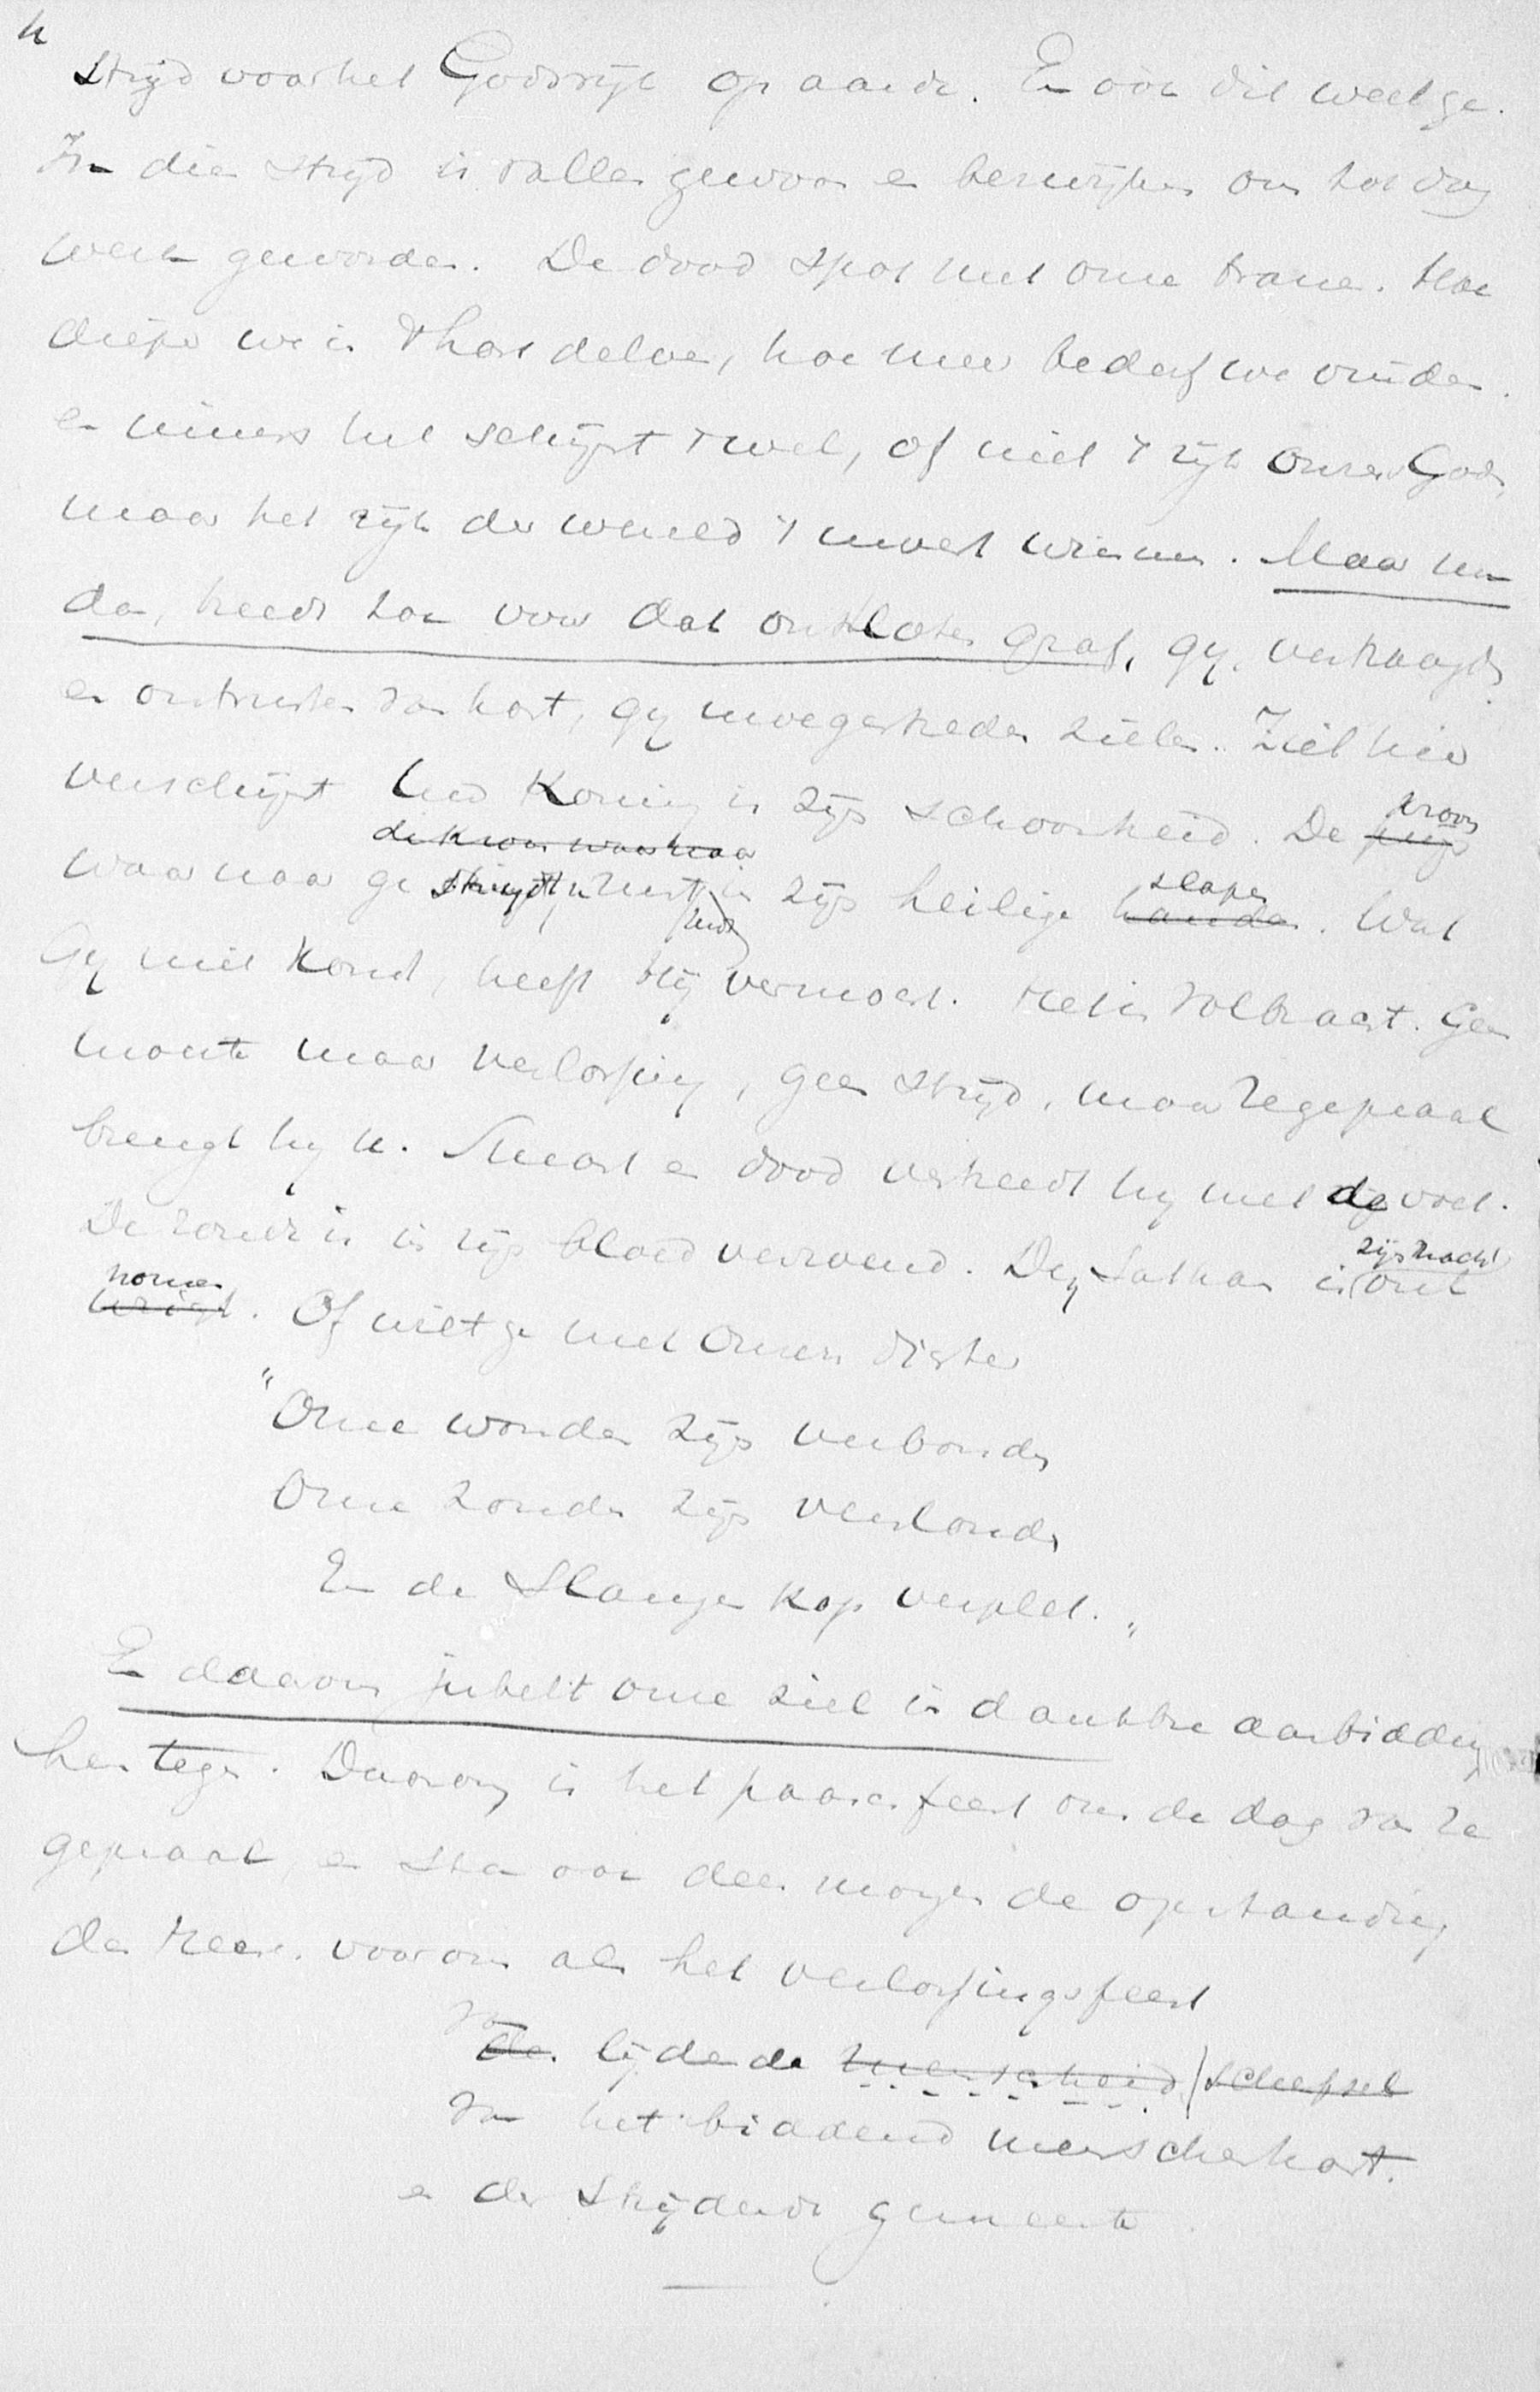 u
strijd voor het Godsrijk op aarde. En ook dit weet ge.
In dien strijd is vallen gewoon en bezwijken ons tot dag
werk geworden. De dood spot met onze tranen. Hoe
dieper we in 't hart delven, hoe meer bederf we vinden.
en immers het schijnt wel, of niet 't rijk onzes Gods,
maar het rijk der wereld 't moest winnen. Maar kom
dan, treedt toe voor dat ontsloten graf, gij, vertraagde
en ontrusten van hart, gij moegestreden zielen. Ziet hier
verschijnt uw Koning in zijn schoonheid. De kroon
de kroon waarnaar
waarnaar ge rust in zijn heilige handen slapen. Wat
Gij niet kond, heeft Hij vermocht. Het is volbracht. Geen
moeite maar verlossing, geen strijd, maar zegepraal
brengt hij u. Smart en dood vertreedt hij met de voet.
De zonde is in zijn bloed verzoend. Den Sathan is zijn macht ont
nomen. Of niet ge met onzen dichter
"Onze wonden zijn verbonden
Onze zonden zijn verslonden
En de Slangen kop verplet."
En daarom jubelt onze ziel in dankbre aanbidding
hem tegen. Daarom is het paaschfeest ons de dag van ze
gepraal, en sta ook dezen morgen de opstanding
des Heeren voor ons als het verlossingsfeest
van de lijdende menschheid / schepsel
van het biddend menschenhart.
en der strijdende gemeente.